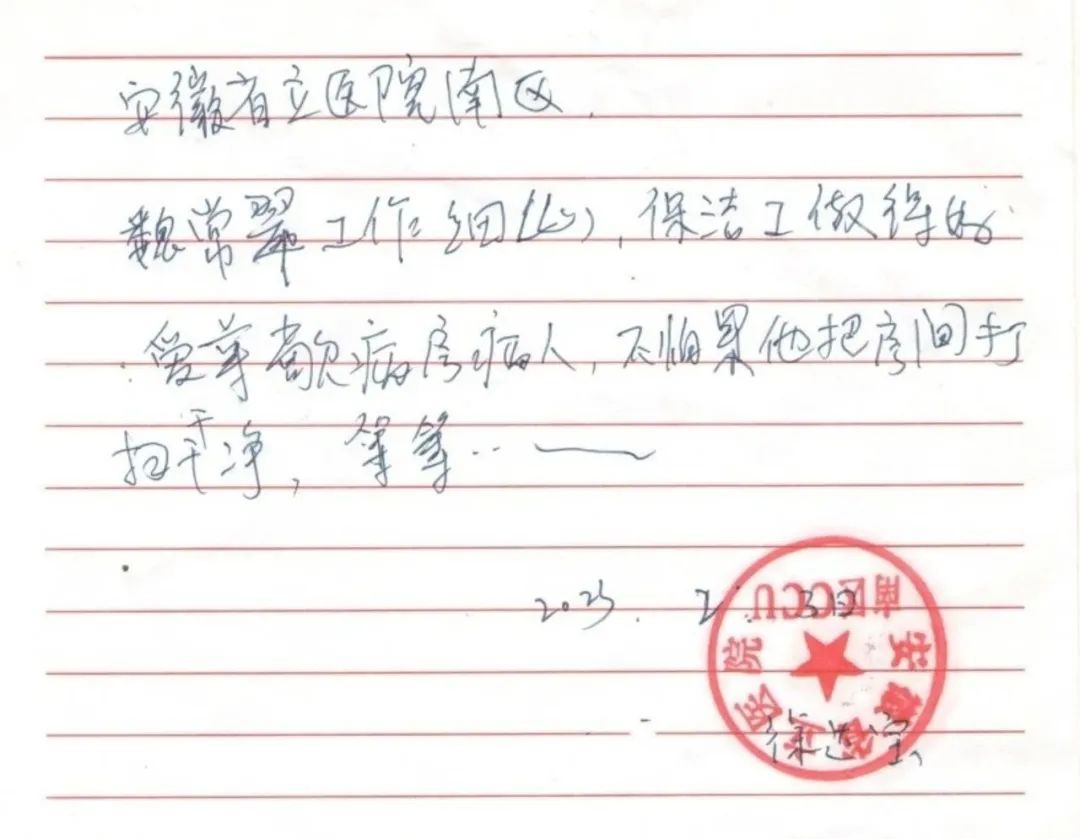 安徽省立医院南区.
魏常翠工作细心,保洁工做得好
受尊敬病房病人,不怕累他把房间打
扫干净,等等..——
2025.2.3日
南区CCU
安徽省立医院
徐